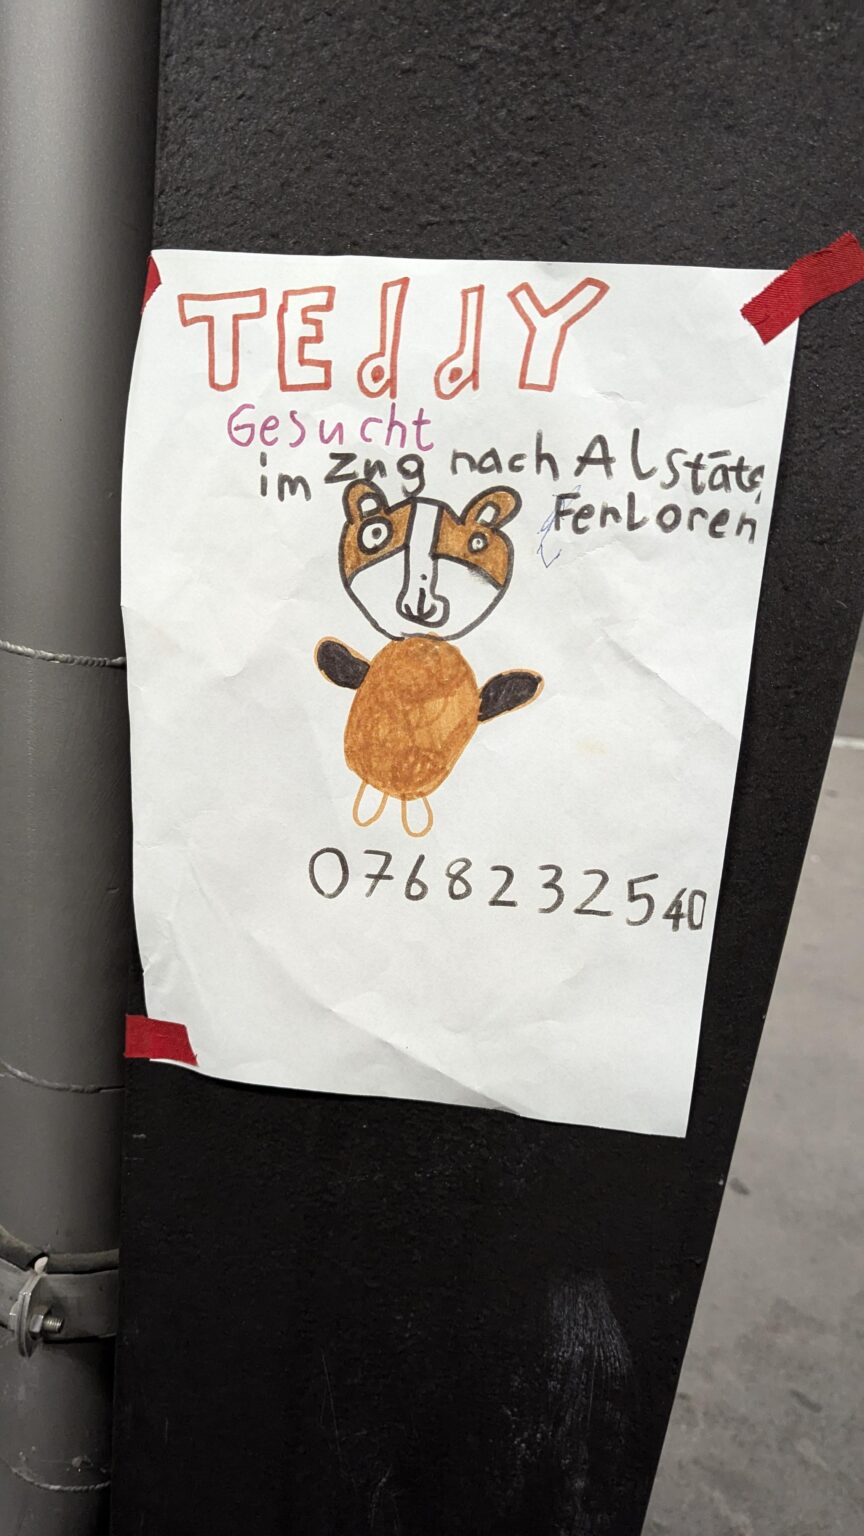 TEddY
Gesucht
im Zug nach Alstäte
FenLoren
0768232540